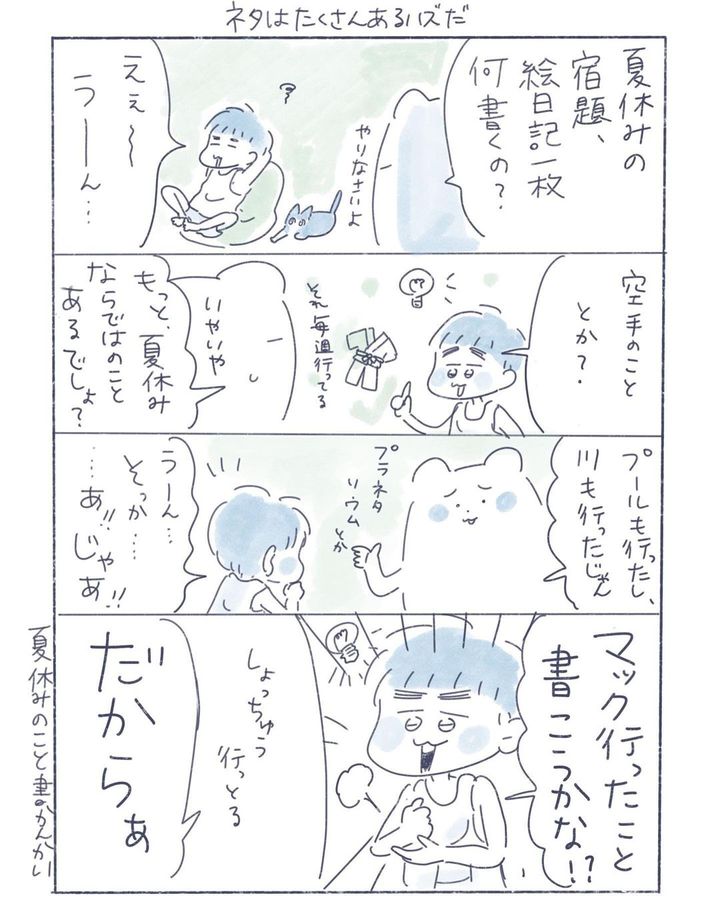 ネタはたくさんあるハズだ
夏休みの
宿題、
絵日記一枚
何書くの?
やりなさいよ
えぇ〜
うーん…
空手のこと
とか?
それ毎週行ってる
いやいや
もっと、夏休み
ならではのこと
あるでしょ?
プールも行ったし、
川も行ったじゃん
プラネタ
リウムとか
うーん…
そっか……
…あ!!じゃあ!!
マック行ったこと
書こうかな!?
しょっちゅう
行っとる
だからぁ
夏休みのこと書かんかい